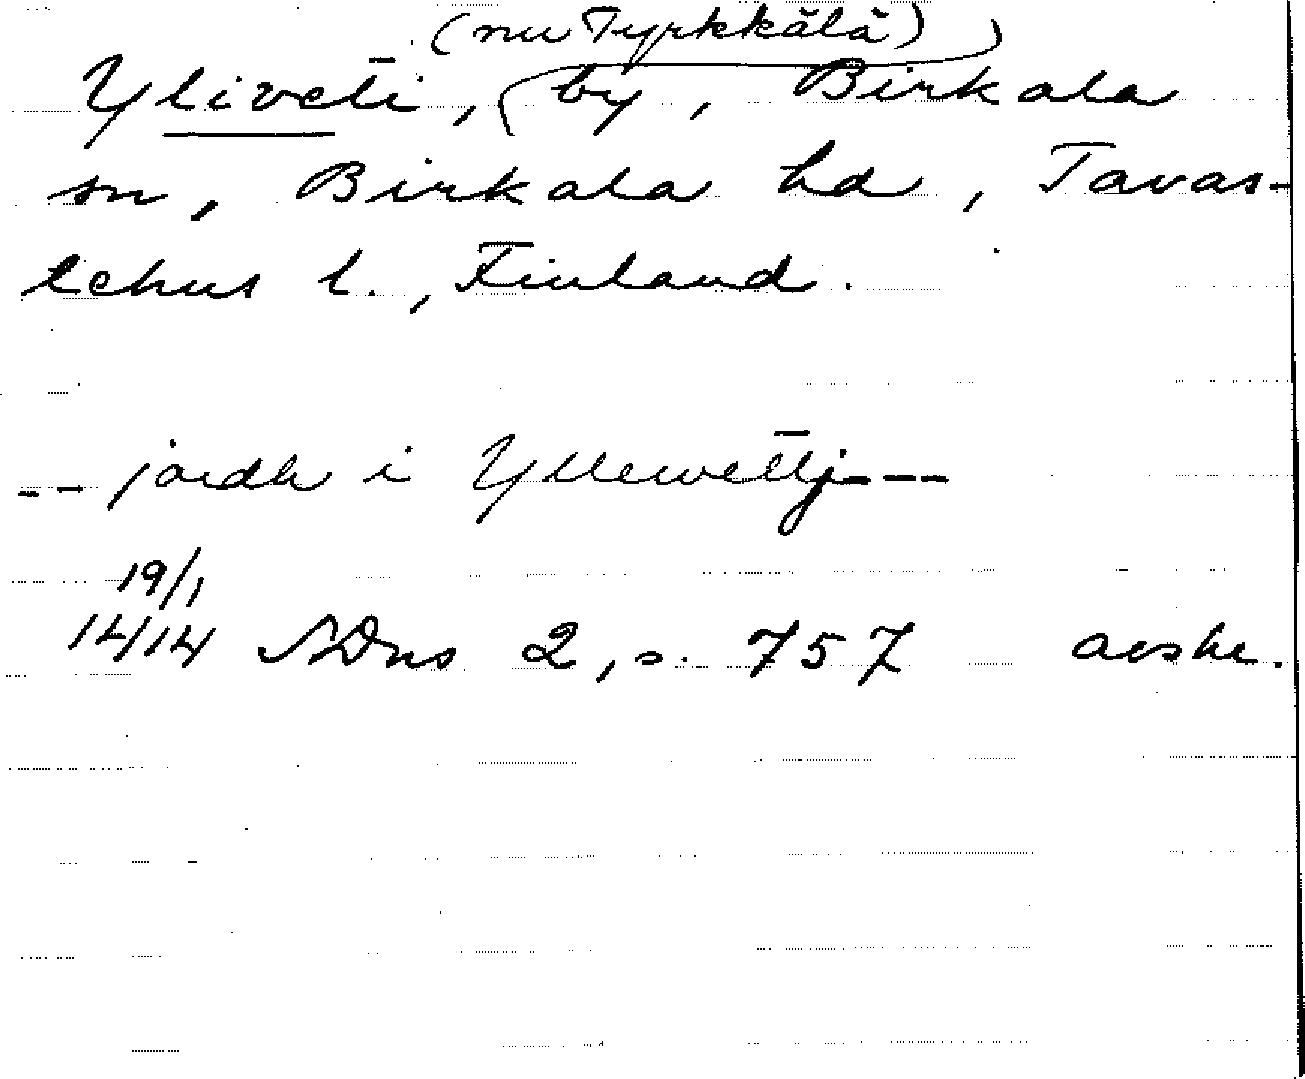 (nu Tyrkkälä)
Yliveti, by, Birkala
sn, Birkala hd, Tavas-
tehus l., Finland.
-- jordh i Yllewettj---
19/1
1414 SDns 2, s. 757 avskr.